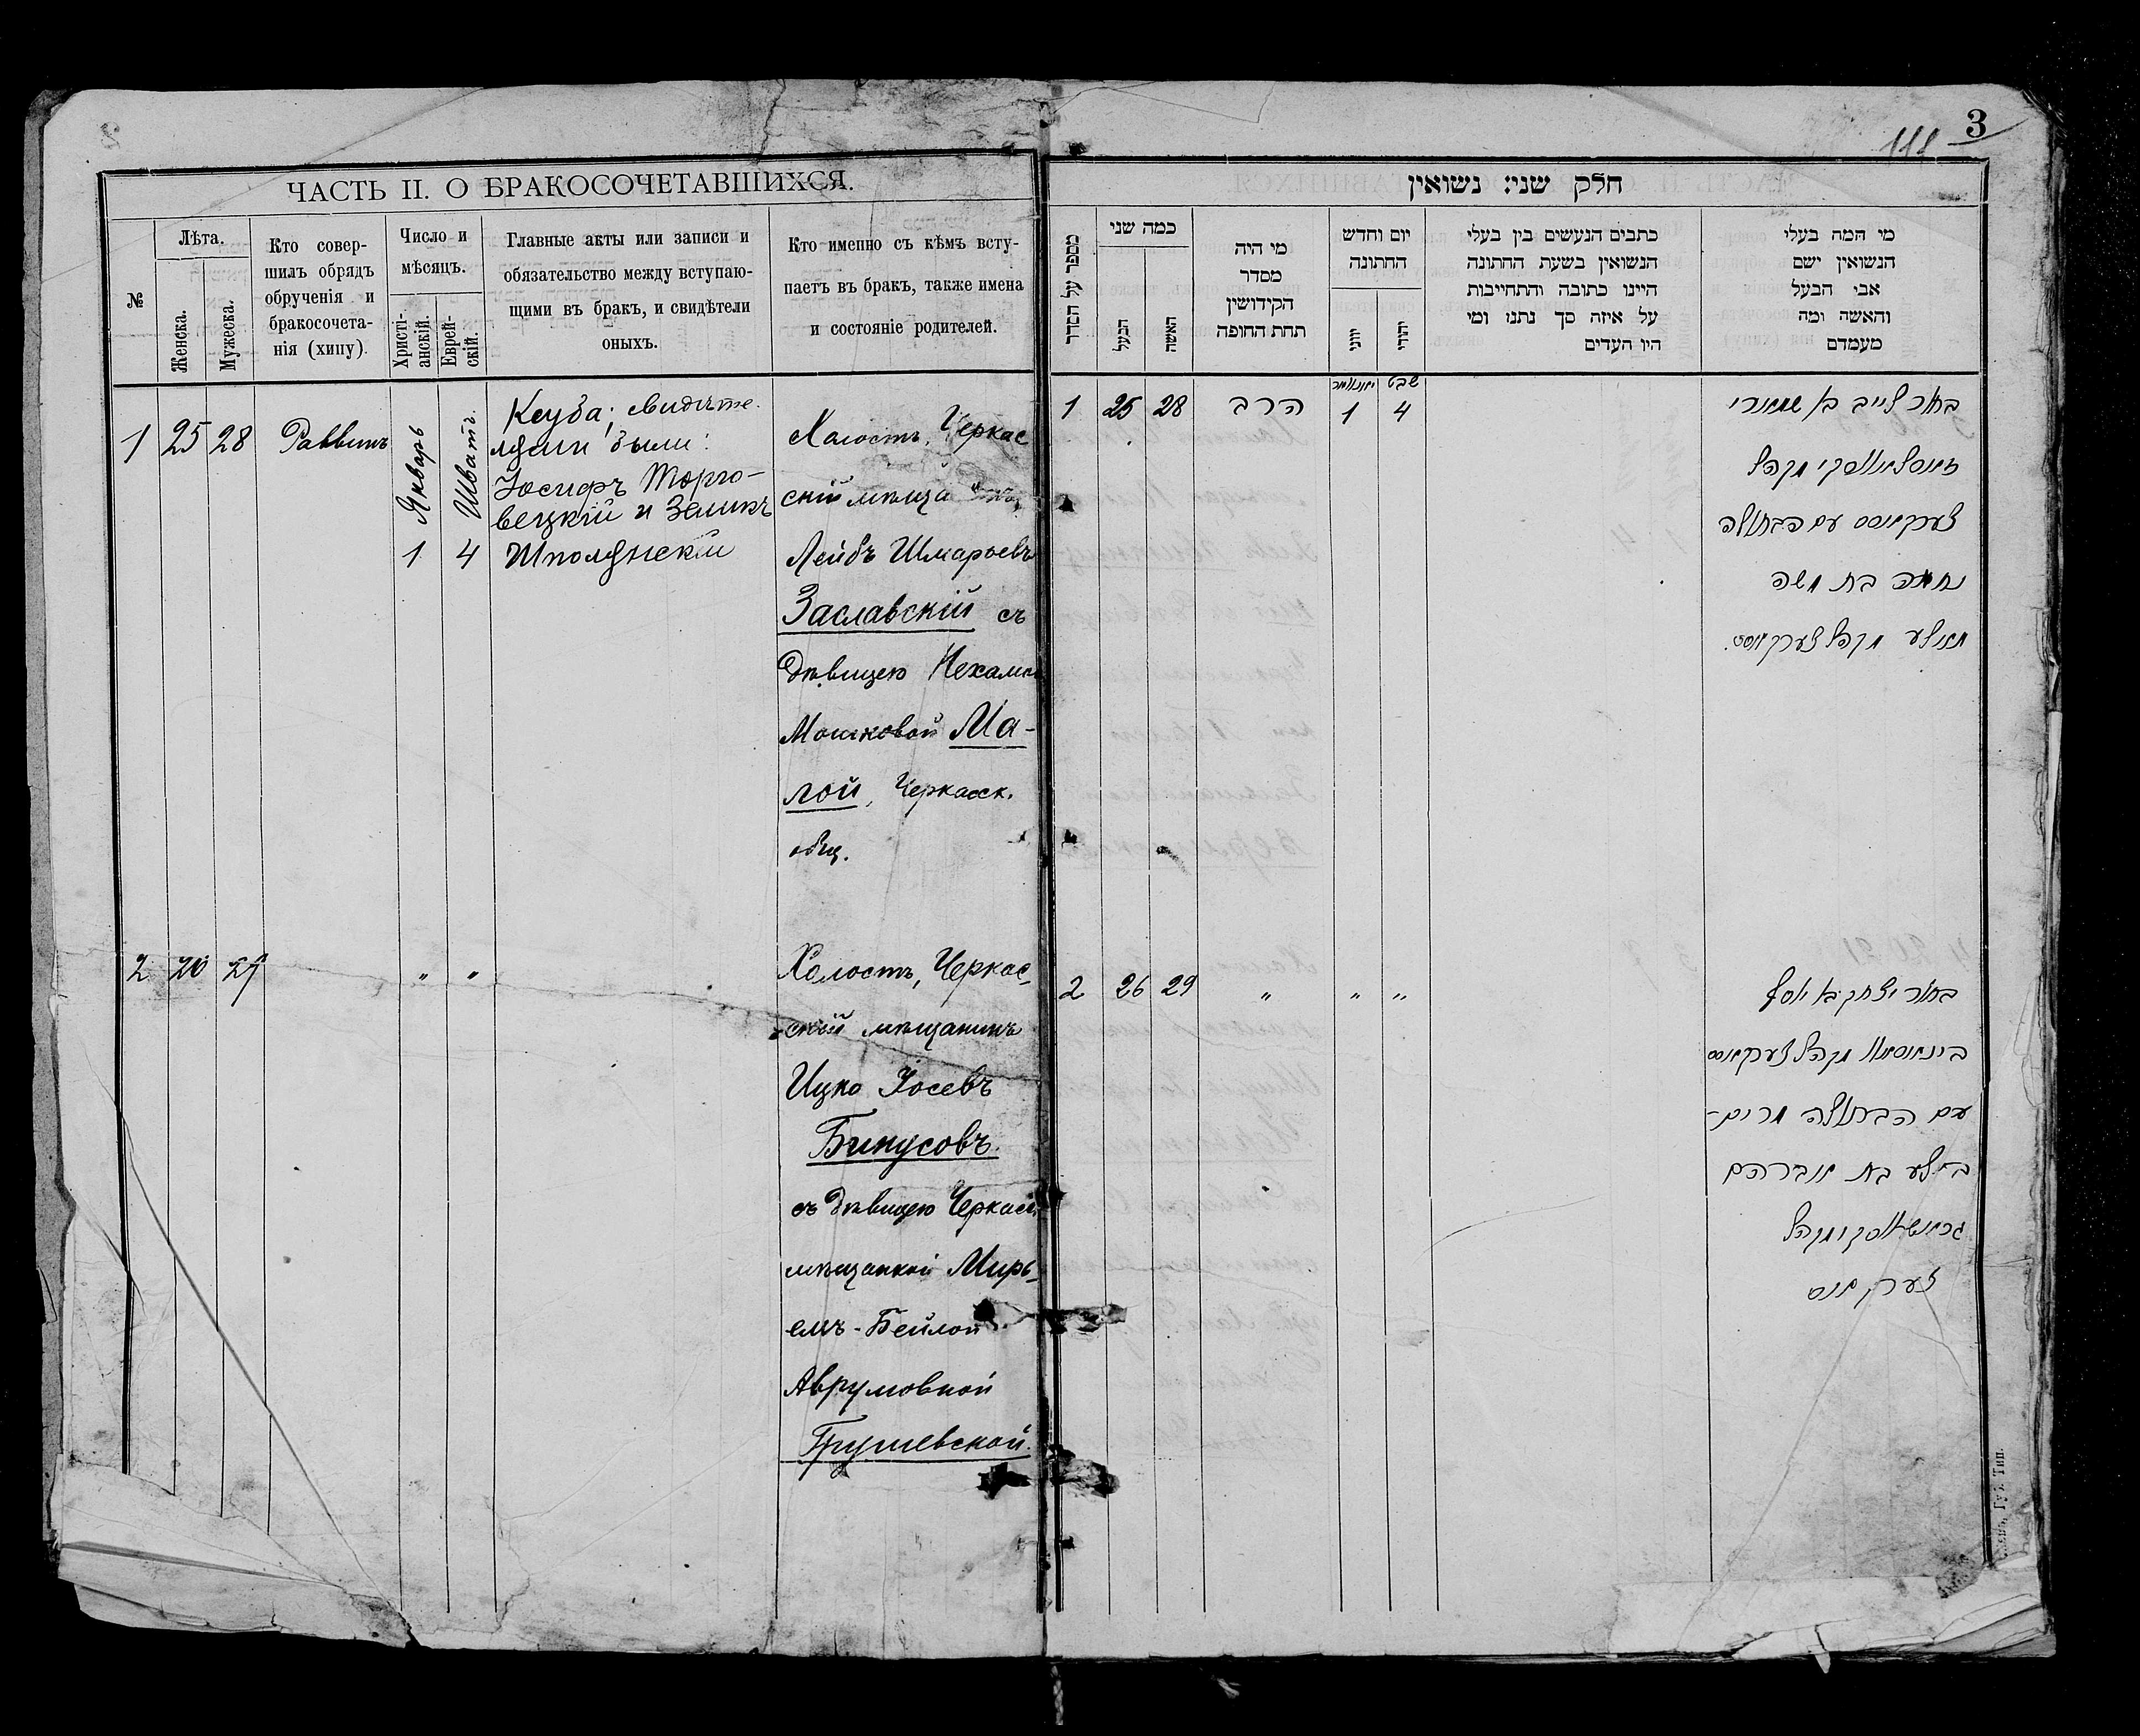 3
111
ЧАСТЬ II. О БРАКОСОЧЕТАВШИХСЯ.
№
Лѣта.
Женска.
Мужеска.
Кто совер-
шилъ обрядъ
обрученія и
бракосочета-
нія (хипу).
Число и
мѣсяцъ.
Христі-
анскій.
Еврей-
скій.
Главные акты или записи и
обязательство между вступаю-
щими въ бракъ, и свидѣтели
оныхъ.
Кто именно съ кѣмъ всту-
паетъ въ бракъ, также имена
и состояніе родителей.
1 25 28 Раввинъ
Январь
1
Шватъ
4
Ксуба; свидѣте-
лями были:
Іосифъ Торго-
вецкій и Зеликъ
Шполянскій
Холостъ, Черкас
скій мѣща нъ,
Лейбъ Шмарьевъ
Заславскій съ
дѣвицею Нехамою
Мошковой Ма-
лой, Черкасск.
общ.
2 20 27 " "
Холостъ, Черкас-
скій мѣщанинъ
Ицко Іосевъ
Бинусовъ.
съ дѣвицею Черкасс.
мѣщанкой Мирь-
емъ-Бейлой
Аврумовной
Грушевской.
חלק שני: נשואין
מספר על הסדר
כמה שני
הבעל
האשה
מי היה
מסדר
הקידושין
תחת החופה
יום וחדש
החתונה
יוני
יהודי
כתבים הנעשים בין בעלי
הנשואין בשעת החתונה
היינו כתובה והתחייבות
על איזה סך נתנו ומי
היו העדים
מי המה בעלי
הנשואין ושם
אבי הבעל
והאשה ומה
מעמדם
1 25 28 הרב
יאנואר
1
שבט
4
בחור לייב בן שמארי
זאסלאווסקי מקהל
צערקאסס עם הבתולה
נחמה בת משה
מאלע מקהל צערקאסס.
2 26 29 " " "
בחור יצחק בן יוסף
בינאוסאוו מקהל צערקאסס
עם הבתולה מרים-
ביילע בת אברהם
גרושעווסקי מקהל
צערקאסס
Губ. Тип.